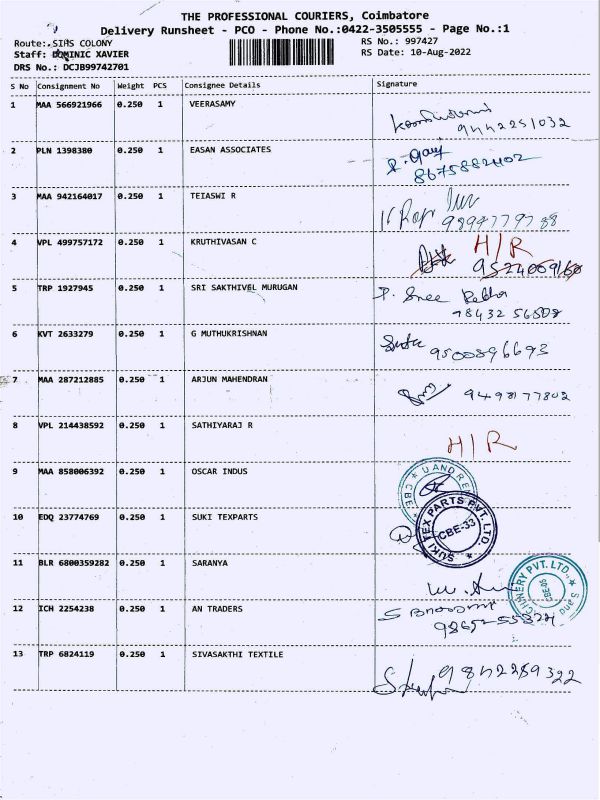 THE PROFESSIONAL COURIERS, Coimbatore
Delivery Runsheet - PCO - Phone No.:0422-3505555 - Page No.:1
Route: SIHS COLONY
RS No.: 997427
Staff: DOMINIC XAVIER
RS Date: 10-Aug-2022
DRS No.: DCJB99742701
S No Consignment No Weight PCS Consignee Details Signature
1 MAA 566921966 0.250 1 VEERASAMY
9442251032
2 PLN 1398380 0.250 1 EASAN ASSOCIATES
8675882402
3 MAA 942164017 0.250 1 TEIASWI R
9894779788
4 VPL 499757172 0.250 1 KRUTHIVASAN C H/R
5 TRP 1927945 0.250 1 SRI SAKTHIVEL MURUGAN P. Sree Rekha
78432 56508
6 KVT 2633279 0.250 1 G MUTHUKRISHNAN
9500896693
7 MAA 287212885 0.250 1 ARJUN MAHENDRAN
9498177802
8 VPL 214438592 0.250 1 SATHIYARAJ R
H/R
9 MAA 858006392 0.250 1 OSCAR INDUS
CBE
10 EDQ 23774769 0.250 1 SUKI TEXPARTS
SUKI TEX PARTS PVT. LTD.
CBE-33
11 BLR 6800359282 0.250 1 SARANYA
CHINERY PVT. LTD.,
12 ICH 2254238 0.250 1 AN TRADERS
13 TRP 6824119 0.250 1 SIVASAKTHI TEXTILE
9842289322